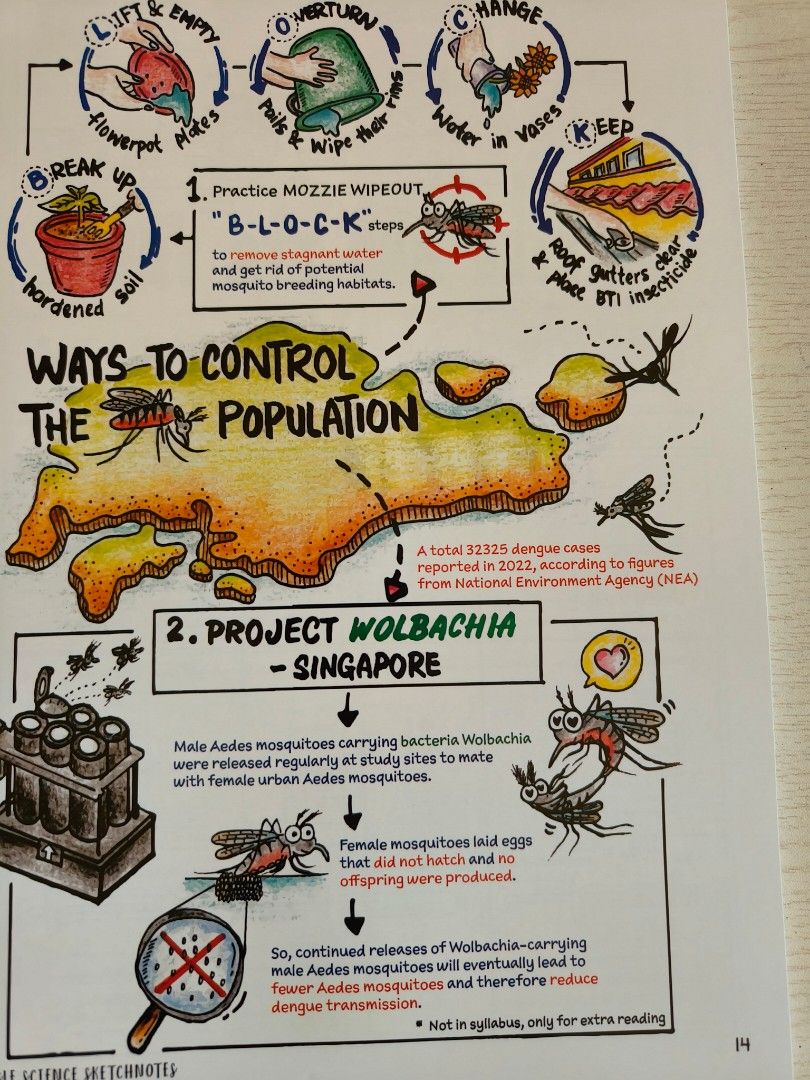 LIFT & EMPTY
flowerpot plates
OVERTURN
Pails & wipe their rims
CHANGE
Water in vases
KEEP
Roof gutters clear
& place BTI insecticide
BREAK UP
hardened soil
1. Practice MOZZIE WIPEOUT
"B-L-O-C-K" steps
to remove stagnant water
and get rid of potential
mosquito breeding habitats.
WAYS TO CONTROL
THE POPULATION
A total 32325 dengue cases
reported in 2022, according to figures
from National Environment Agency (NEA)
2. PROJECT WOLBACHIA
- SINGAPORE
Male Aedes mosquitoes carrying bacteria Wolbachia
were released regularly at study sites to mate
with female urban Aedes mosquitoes.
Female mosquitoes laid eggs
that did not hatch and no
offspring were produced.
So, continued releases of Wolbachia-carrying
male Aedes mosquitoes will eventually lead to
fewer Aedes mosquitoes and therefore reduce
dengue transmission.
* Not in syllabus, only for extra reading
14
SCIENCE SKETCHNOTES